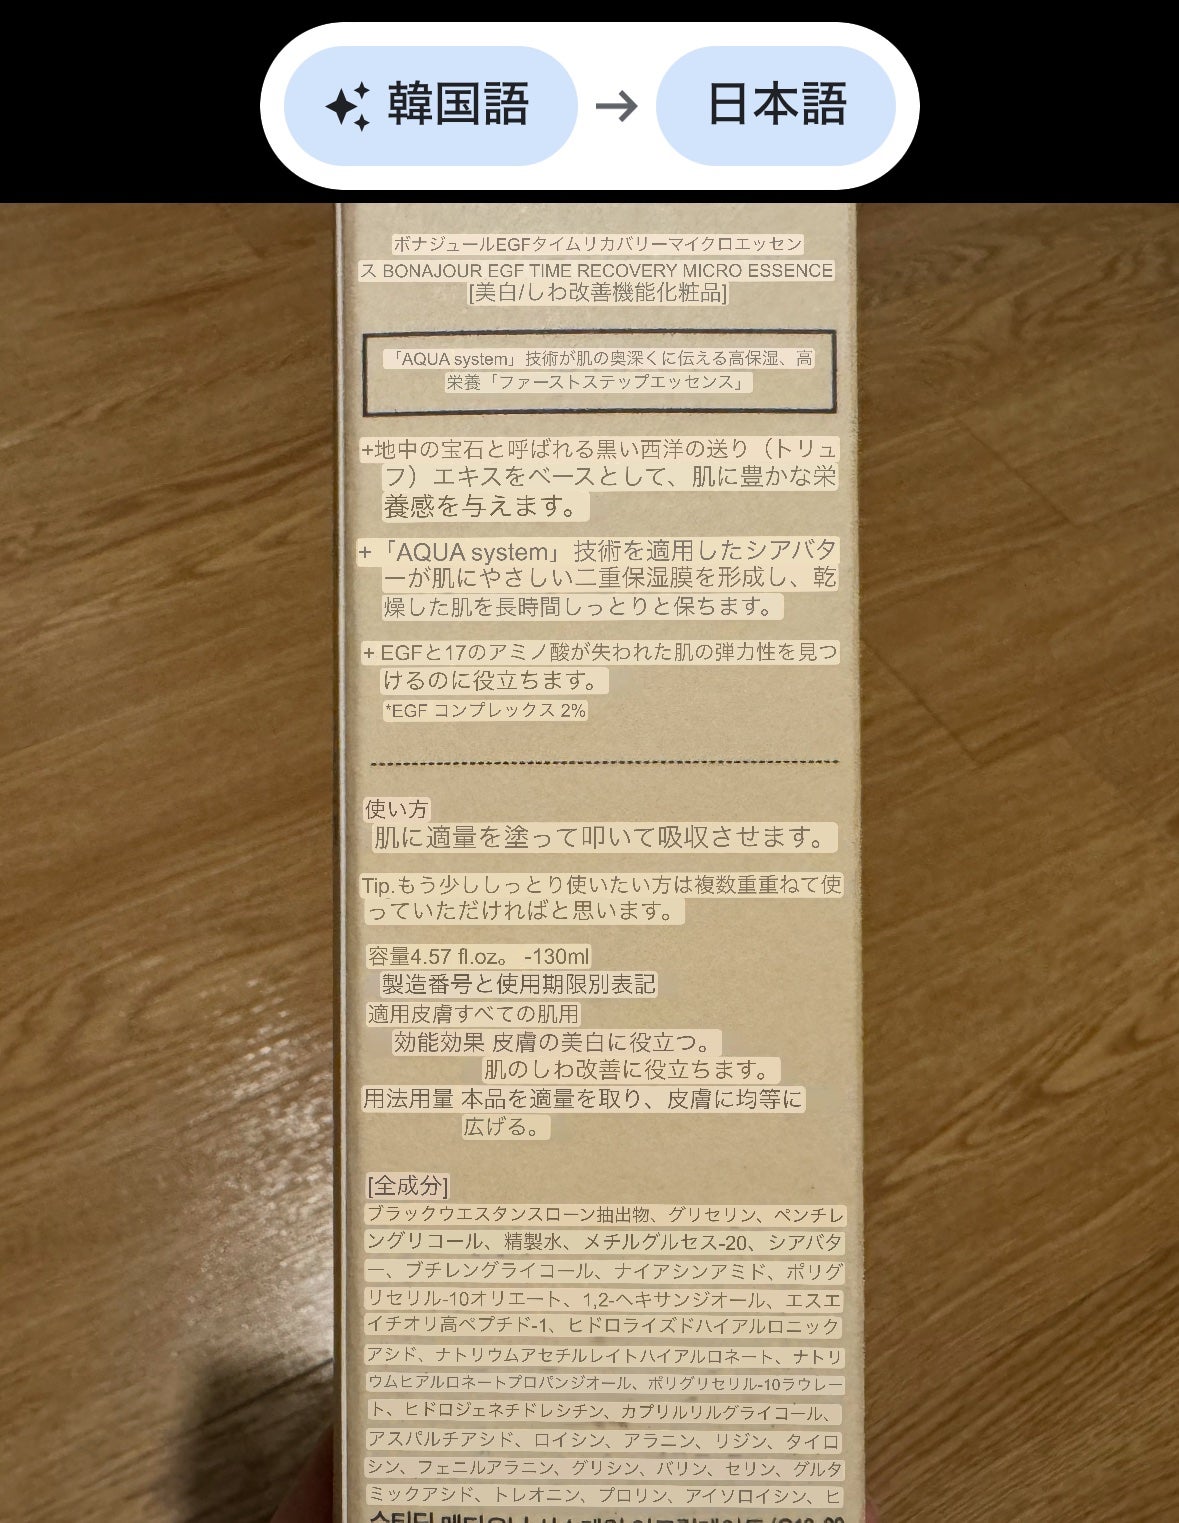 韓国語 → 日本語
ボナジュールEGFタイムリカバリーマイクロエッセン
ス BONAJOUR EGF TIME RECOVERY MICRO ESSENCE
[美白/しわ改善機能化粧品]
「AQUA system」技術が肌の奥深くに伝える高保湿、高
栄養「ファーストステップエッセンス」
+地中の宝石と呼ばれる黒い西洋の送り（トリュ
フ）エキスをベースとして、肌に豊かな栄
養感を与えます。
+「AQUA system」技術を適用したシアバタ
ーが肌にやさしい二重保湿膜を形成し、乾
燥した肌を長時間しっとりと保ちます。
+ EGFと17のアミノ酸が失われた肌の弾力性を見つ
けるのに役立ちます。
*EGF コンプレックス 2%
使い方
肌に適量を塗って叩いて吸収させます。
Tip.もう少ししっとり使いたい方は複数重重ねて使
っていただければと思います。
容量4.57 fl.oz。 -130ml
製造番号と使用期限別表記
適用皮膚すべての肌用
効能効果 皮膚の美白に役立つ。
肌のしわ改善に役立ちます。
用法用量 本品を適量を取り、皮膚に均等に
広げる。
[全成分]
ブラックウエスタンスローン抽出物、グリセリン、ペンチレ
ングリコール、精製水、メチルグルセス-20、シアバタ
ー、ブチレングライコール、ナイアシンアミド、ポリグ
リセリル-10オリエート、1,2-ヘキサンジオール、エスエ
イチオリ高ペプチド-1、ヒドロライズドハイアルロニック
アシド、ナトリウムアセチルレイトハイアルロネート、ナトリ
ウムヒアルロネートプロパンジオール、ポリグリセリル-10ラウレー
ト、ヒドロジェネチドレシチン、カプリルリルグライコール、
アスパルチアシド、ロイシン、アラニン、リジン、タイロ
シン、フェニルアラニン、グリシン、バリン、セリン、グルタ
ミックアシド、トレオニン、プロリン、アイソロイシン、ヒ